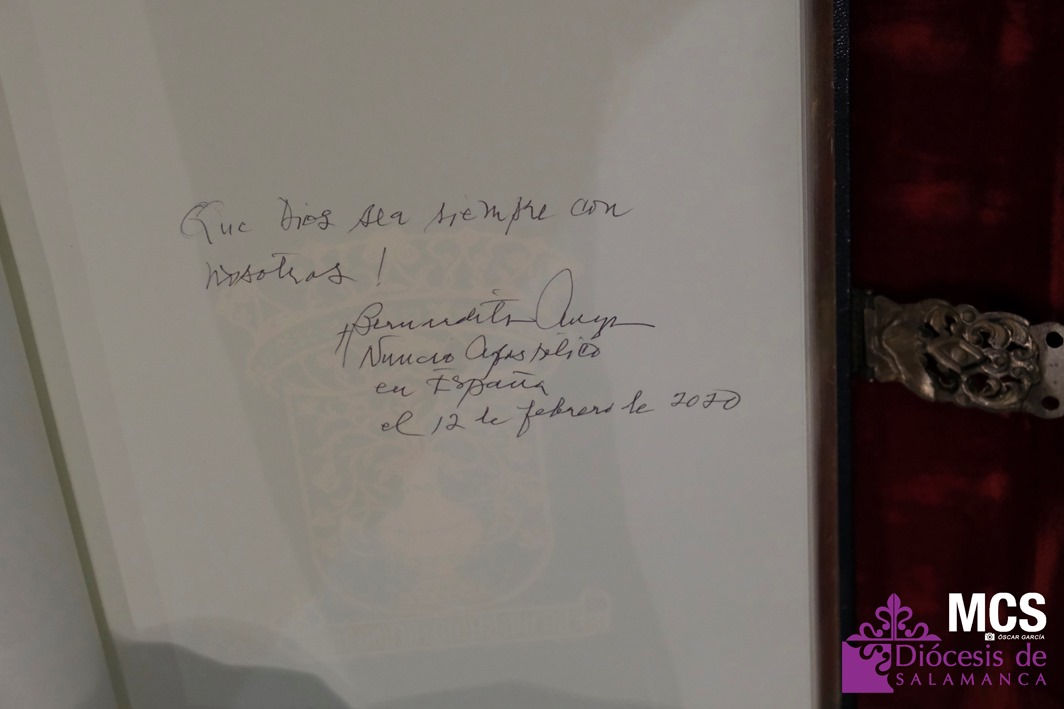 Que Dios sea siempre con
nosotros!
+Bernardito Auza
Nuncio Apostólico
en España
el 12 de febrero de 2020
MCS
ÓSCAR GARCÍA
Diócesis de
SALAMANCA